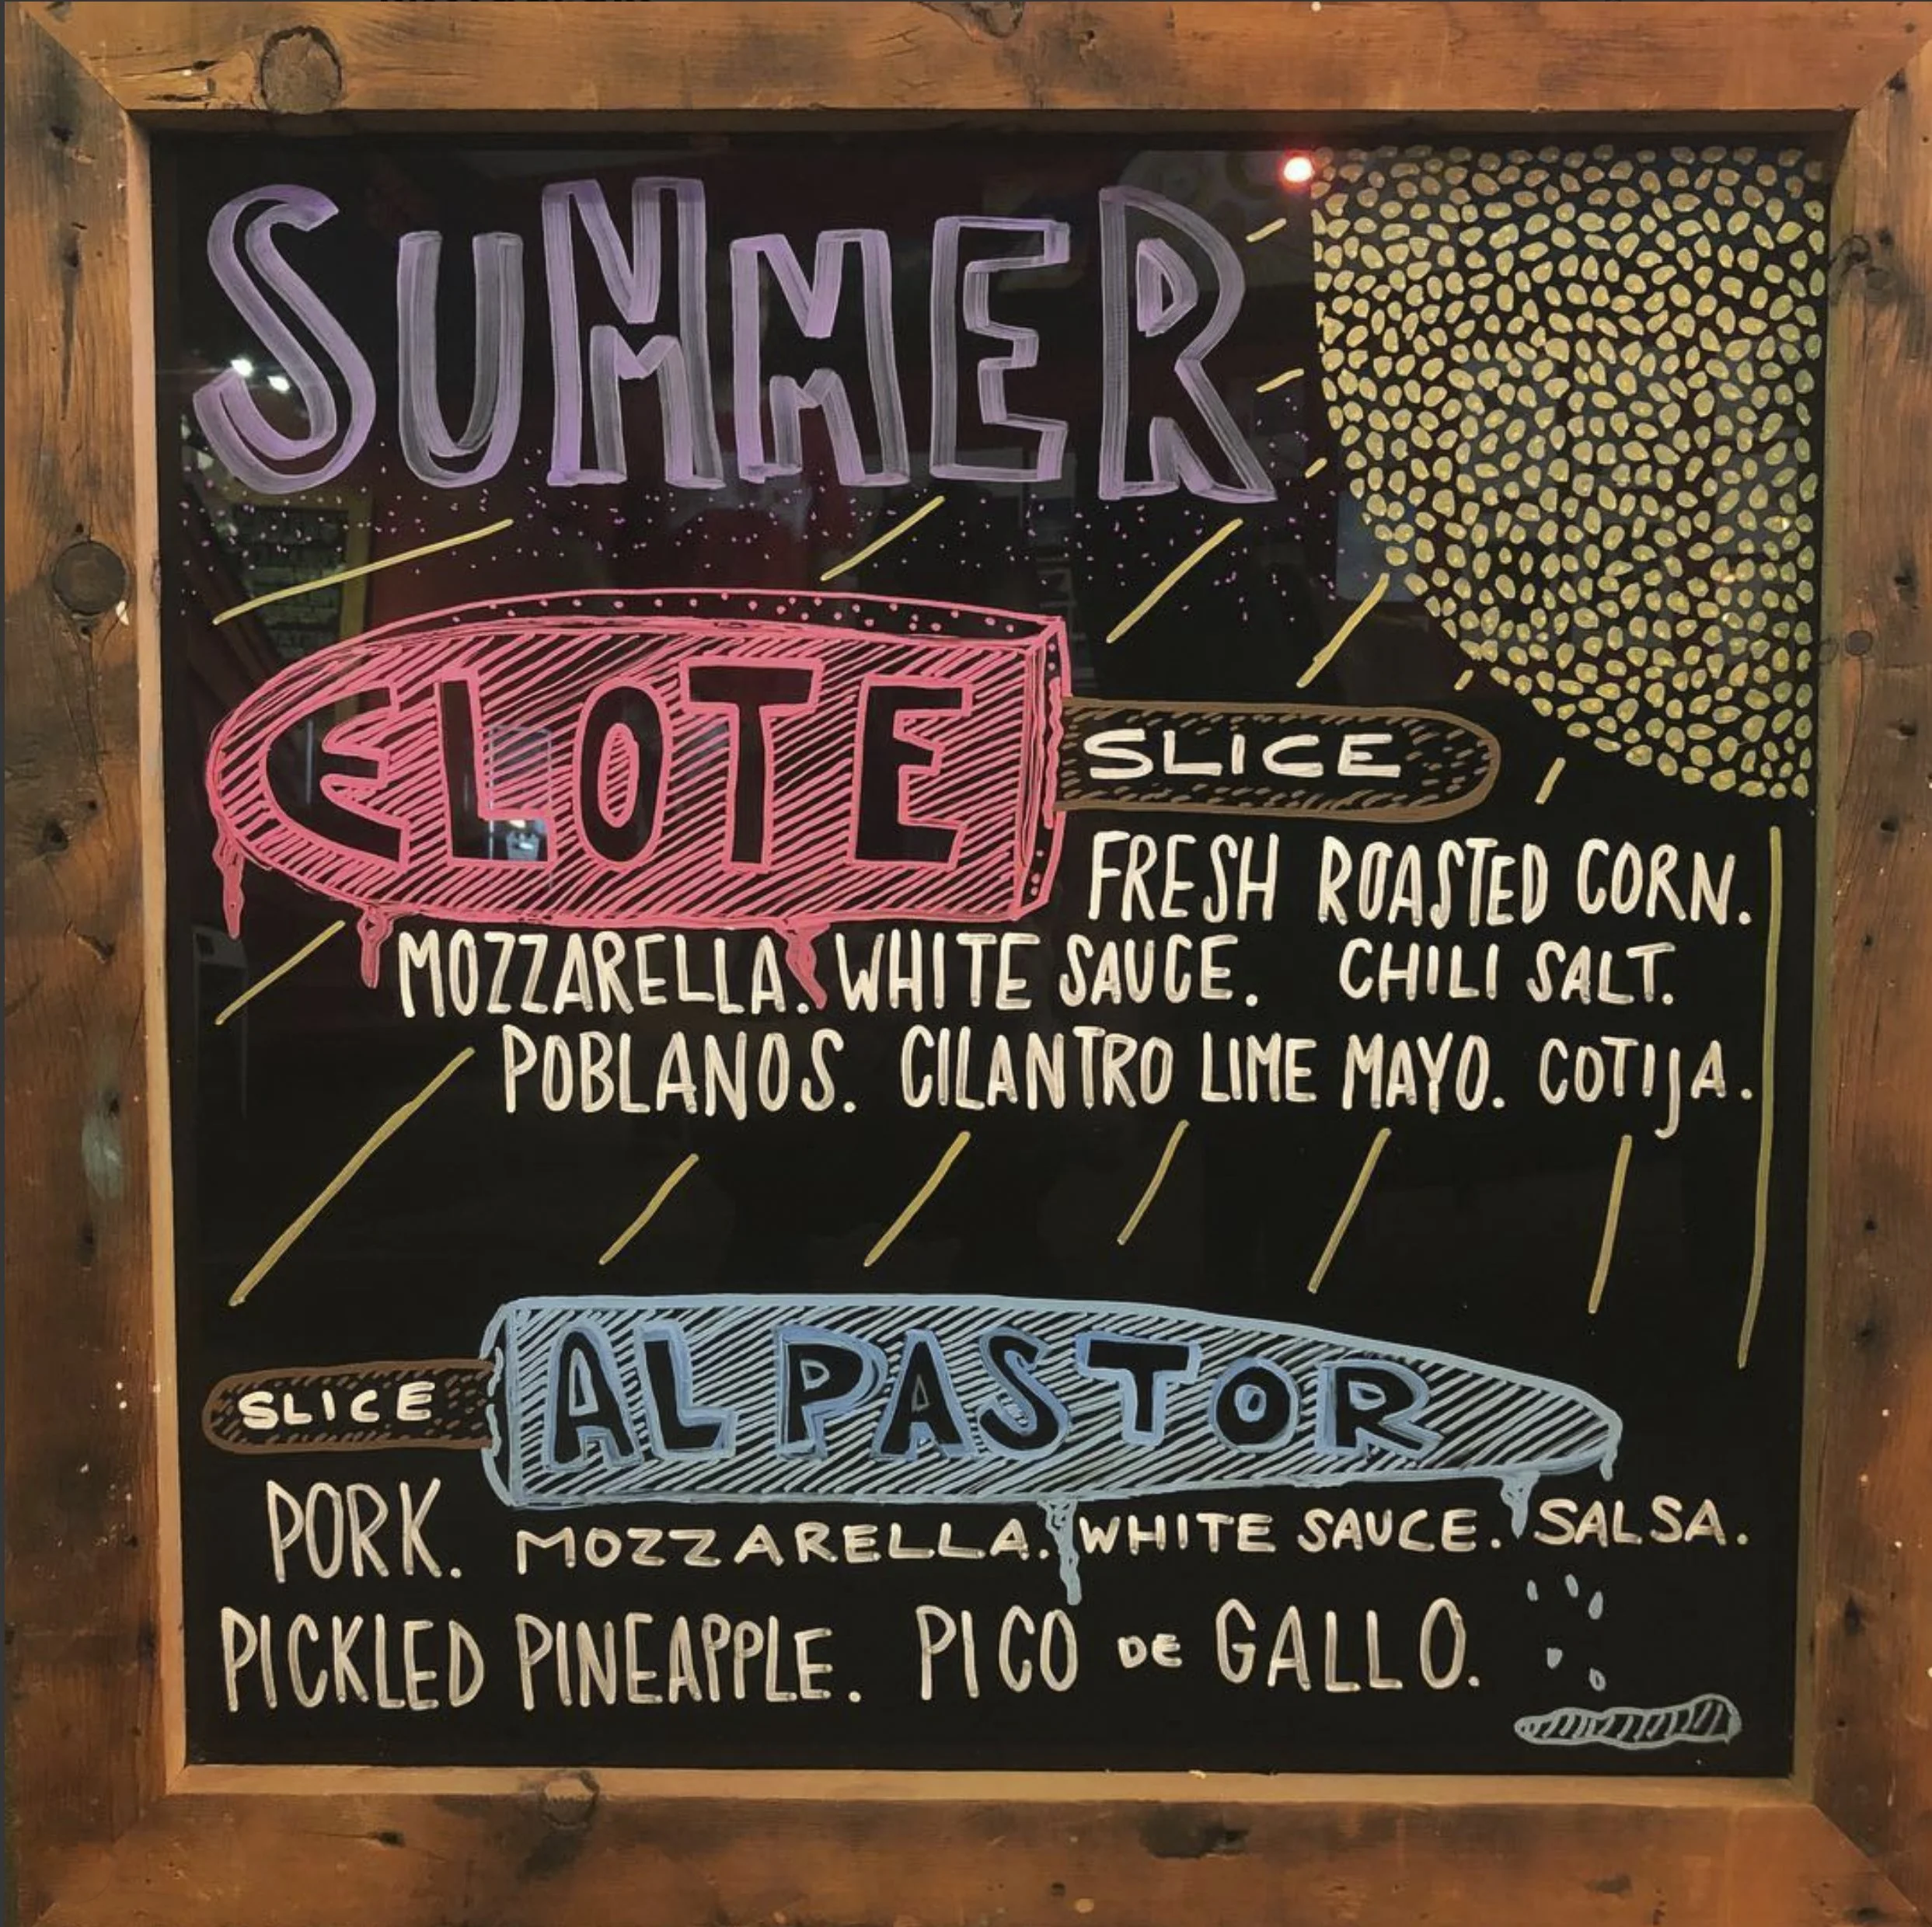 SUMMER
ELOTE SLICE
FRESH ROASTED CORN.
MOZZARELLA. WHITE SAUCE. CHILI SALT.
POBLANOS. CILANTRO LIME MAYO. COTIJA.
SLICE AL PASTOR
PORK. MOZZARELLA. WHITE SAUCE. SALSA.
PICKLED PINEAPPLE. PICO DE GALLO.